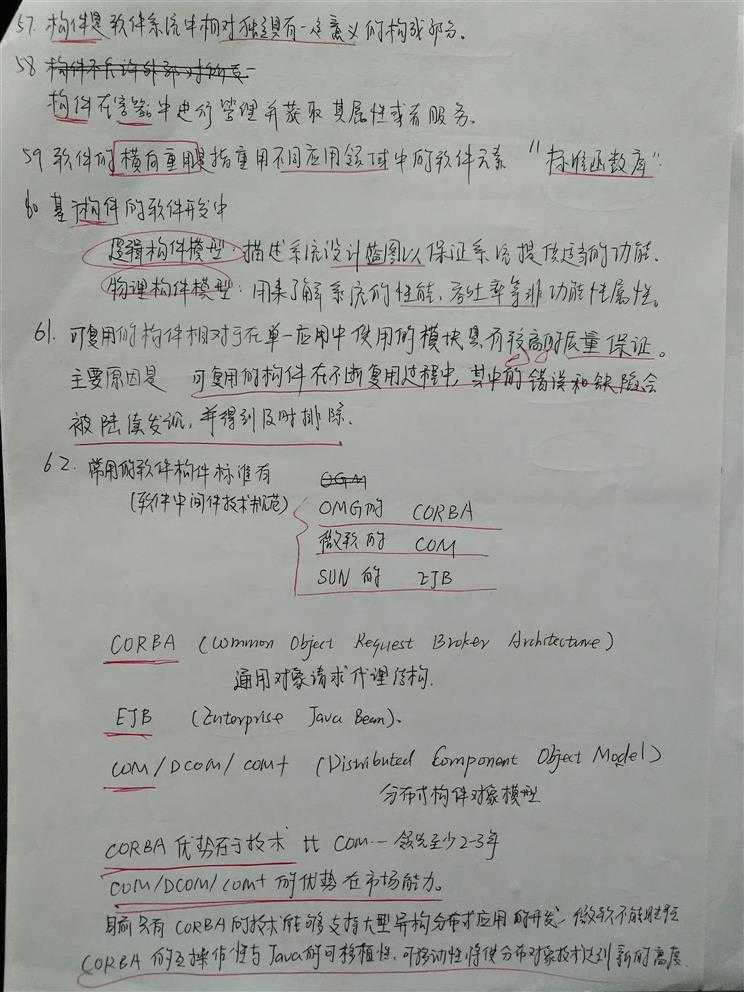 57. 构件是软件系统中相对独立具有一定意义的构成部分。
58 构件不允许外部对构件
构件在容器中进行管理并获取其属性或者服务。
59 软件的横向重用是指重用不同应用领域中的软件元素 "标准函数库".
60 基于构件的软件开发中
逻辑构件模型: 描述系统设计蓝图以保证系统提供适当的功能.
物理构件模型: 用来了解系统的性能、吞吐率等非功能性属性。
61. 可复用的构件相对于在单一应用中使用的模块具有较高的质量保证。
主要原因是 可复用的构件在不断复用过程中, 其中的错误和缺陷会
被陆续发现, 并得到及时排除.
62. 常用的软件构件标准有
(软件中间件技术规范)
OGM
OMG的 CORBA
微软的 COM
SUN的 EJB
CORBA (Common Object Request Broker Architecture)
通用对象请求代理结构.
EJB (Enterprise Java Bean).
COM/DCOM/COM+ (Distributed Component Object Model)
分布式构件对象模型
CORBA 优势在于技术 比 COM… 领先至少2-3年
COM/DCOM/COM+ 的优势在市场能力。
目前只有 CORBA的技术能够支持大型异构分布式应用的开发, 微软不能
CORBA 的互操作性与Java的可移植性、可移动性将使分布对象技术达到新的高度